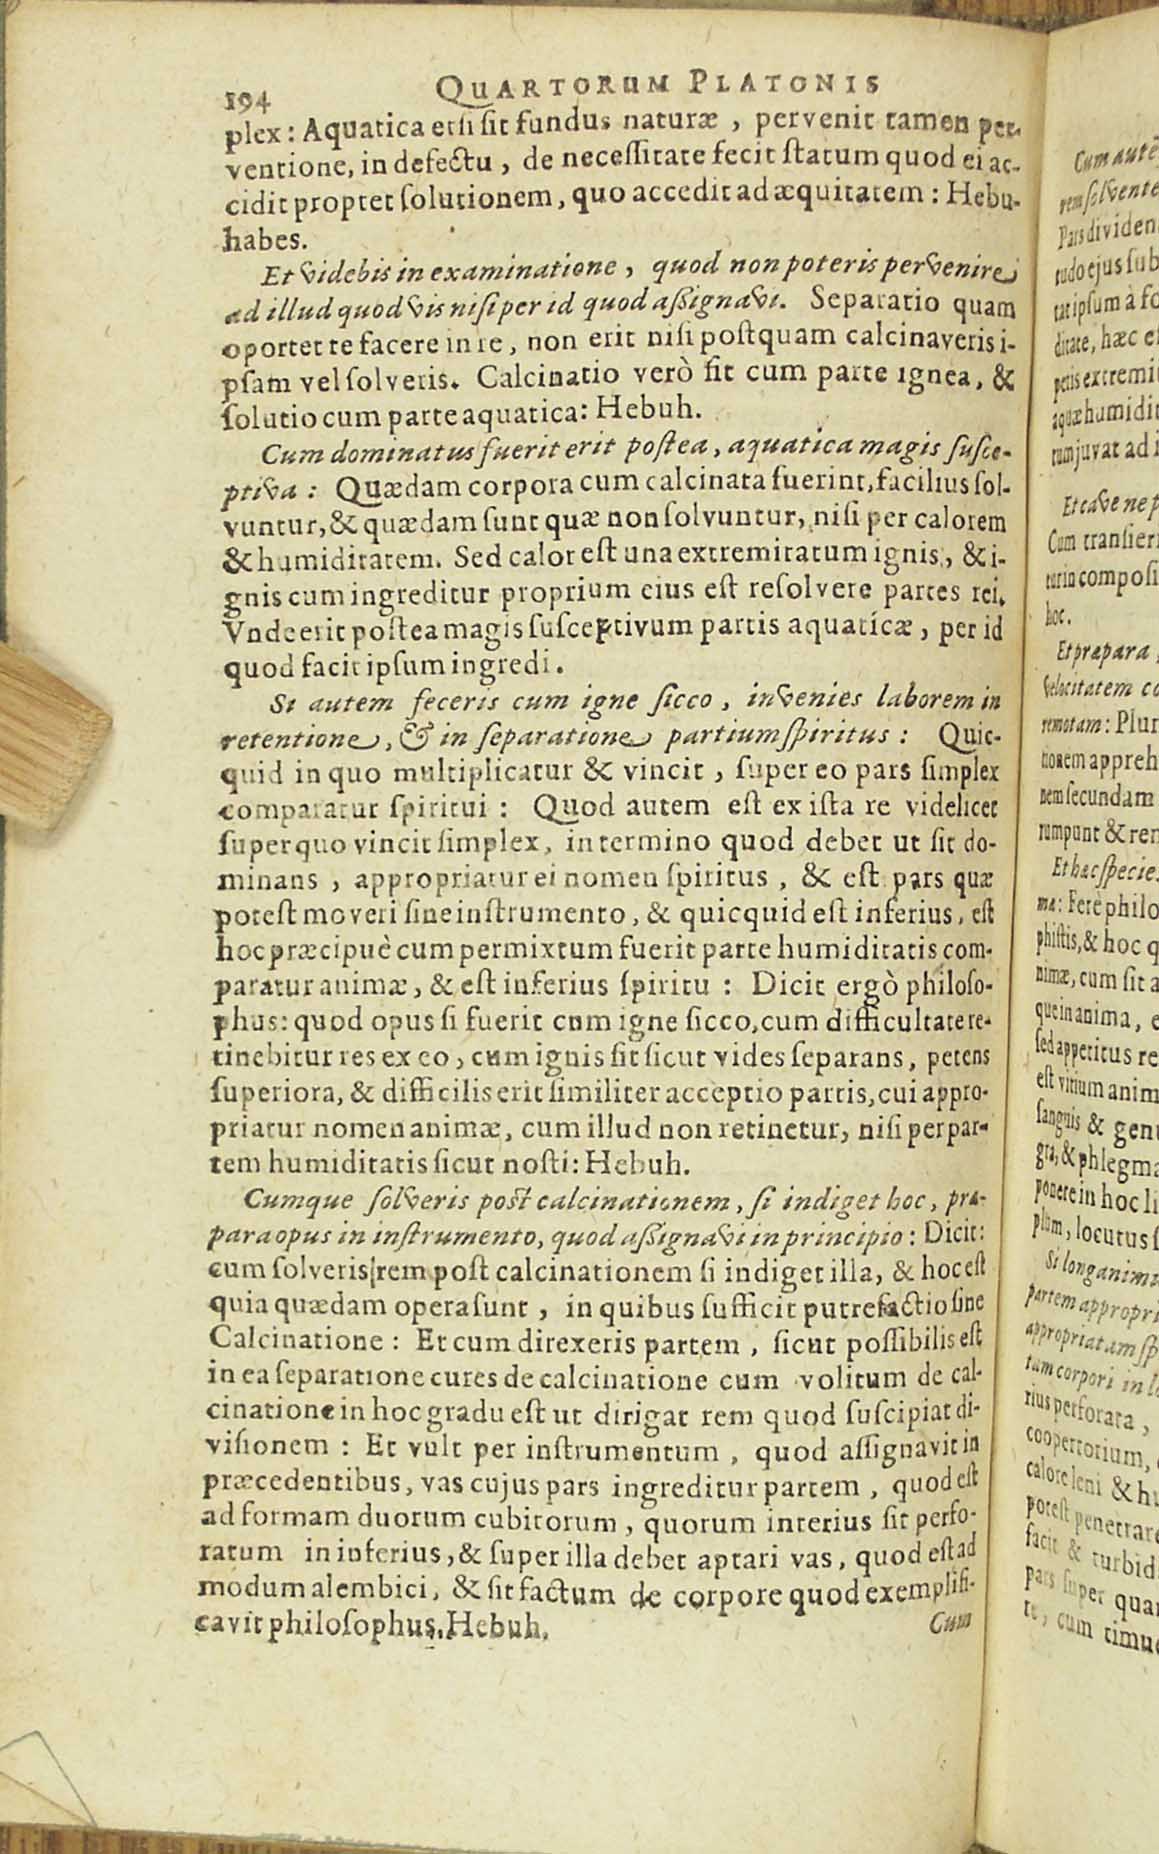 194 QUARTORUM PLATONIS
plex: Aquatica etsi sit fundus naturæ, pervenit tamen per-
ventione, in defectu, de necessitate fecit statum quod ei ac-
cidit propter solutionem, quo accedit ad æquitatem: Hebu-
habes.
Et videbis in examinatione, quod non poteris pervenire
ad illud quod vis nisi per id quod assignavi. Separatio quam
oportet te facere in re, non erit nisi postquam calcinaveris i-
psam vel solveris. Calcinatio verò fit cum parte ignea, &
solutio cum parte aquatica: Hebuh.
Cum dominatus fuerit erit postea, aquatica magis susce-
ptiva: Quædam corpora cum calcinata fuerint, facilius sol-
vuntur, & quædam sunt quæ non solvuntur, nisi per calorem
& humiditatem. Sed calor est una extremitatum ignis, & i-
gnis cum ingreditur proprium eius est resolvere partes rei.
Vnde erit postea magis susceptivum partis aquaticæ, per id
quod facit ipsum ingredi.
Si autem feceris cum igne sicco, invenies laborem in
retentione, & in separatione partium spiritus: Quic-
quid in quo multiplicatur & vincit, super eo pars simplex
comparatur spiritui: Quod autem est ex ista re videlicet
super quo vincit simplex, in termino quod debet ut sit do-
minans, appropriatur ei nomen spiritus, & est pars quæ
potest moveri sine instrumento, & quicquid est inferius, est
hoc præcipuè cum permixtum fuerit parte humiditatis com-
paratur animæ, & est inferius spiritu: Dicit ergò philoso-
phus: quod opus si fuerit cum igne sicco, cum difficultate re-
tinebitur res ex eo, cum ignis sit sicut vides separans, petens
superiora, & difficilis erit similiter acceptio partis, cui appro-
priatur nomen animæ, cum illud non retinetur, nisi per par-
tem humiditatis sicut nosti: Hebuh.
Cumque solveris post calcinationem, si indiget hoc, præ-
para opus in instrumento, quod assignavi in principio: Dicit:
cum solveris rem post calcinationem si indiget illa, & hoc est
quia quædam opera sunt, in quibus sufficit putrefactio sine
Calcinatione: Et cum direxeris partem, sicut possibilis est
in ea separatione cures de calcinatione cum volitum de cal-
cinatione in hoc gradu est ut dirigat rem quod suscipiat di-
visionem: Et vult per instrumentum, quod assignavit in
præcedentibus, vas cujus pars ingreditur partem, quod est
ad formam duorum cubitorum, quorum interius sit perfo-
ratum in inferius, & super illa debet aptari vas, quod est ad
modum alembici, & sit factum de corpore quod exemplifi-
cavit philosophus. Hebuh.
Cum
Cum autē
rem solvente
Pars dividen
tudo ejus sub
tat ipsum à fo
ditate, hæc es
petis extremi
aquæ humidit
tum juvat ad i
Et cave ne p
Cum transier
tur in composi
hoc.
Et præpara
velocitatem co
remotam: Plur
tionem appreh
nem secundam
rumpunt & ren
Et hæc specie
ma: Ferè philo
phistis, & hoc q
nimæ, cum sit a
que in anima, e
sed appetitus re
est vitium anim
sanguis & genu
gra, & phlegma
ponere in hoc li
plum, locutus s
Si long animi
partem appropri
appropriatam sp
tam corpori in lo
rius perforata,
coopertorium,
calore leni & hu
potest penetrare
facit & turbid
pars super quar
te, cum timue